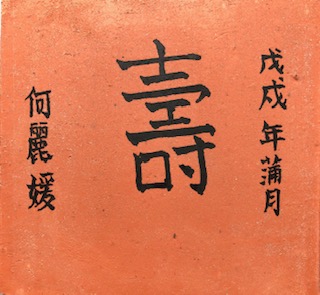 戊戌年蒲月
壽
何麗媛